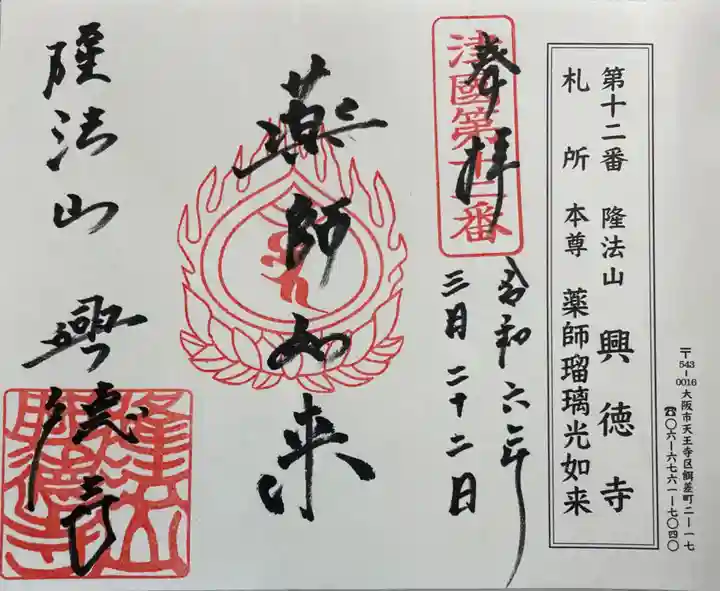 〒543-0016 大阪市天王寺区餌差町二―一七
☎〇六―六七六一―七〇四〇
第十二番 隆法山 興徳寺
札所 本尊 薬師瑠璃光如来
奉拝
津國第十二番
令和六年
三月二十二日
薬師如来
隆法山 興徳寺
隆法山
興徳寺